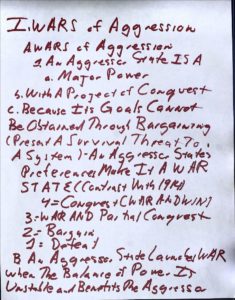 I. WARS of Aggression
A WARS of Aggression
1. An Aggressor State IS A
a. Major Power
b. With A Project of Conquest
c. Because Its Goals Cannot
Be Obtained Through Bargaining
(Present A Survival Threat To
A System)-An Aggressor State's
Preferences Make It A WAR
STATE (Contrast With 1914)
4= Conquest (WAR AND WIN)
3= WAR AND Partial Conquest
2= Bargain
1= Defeat
B An Aggressor State Launches WAR
when The Balance of Power Is
Unstable and Benefits The Aggressor